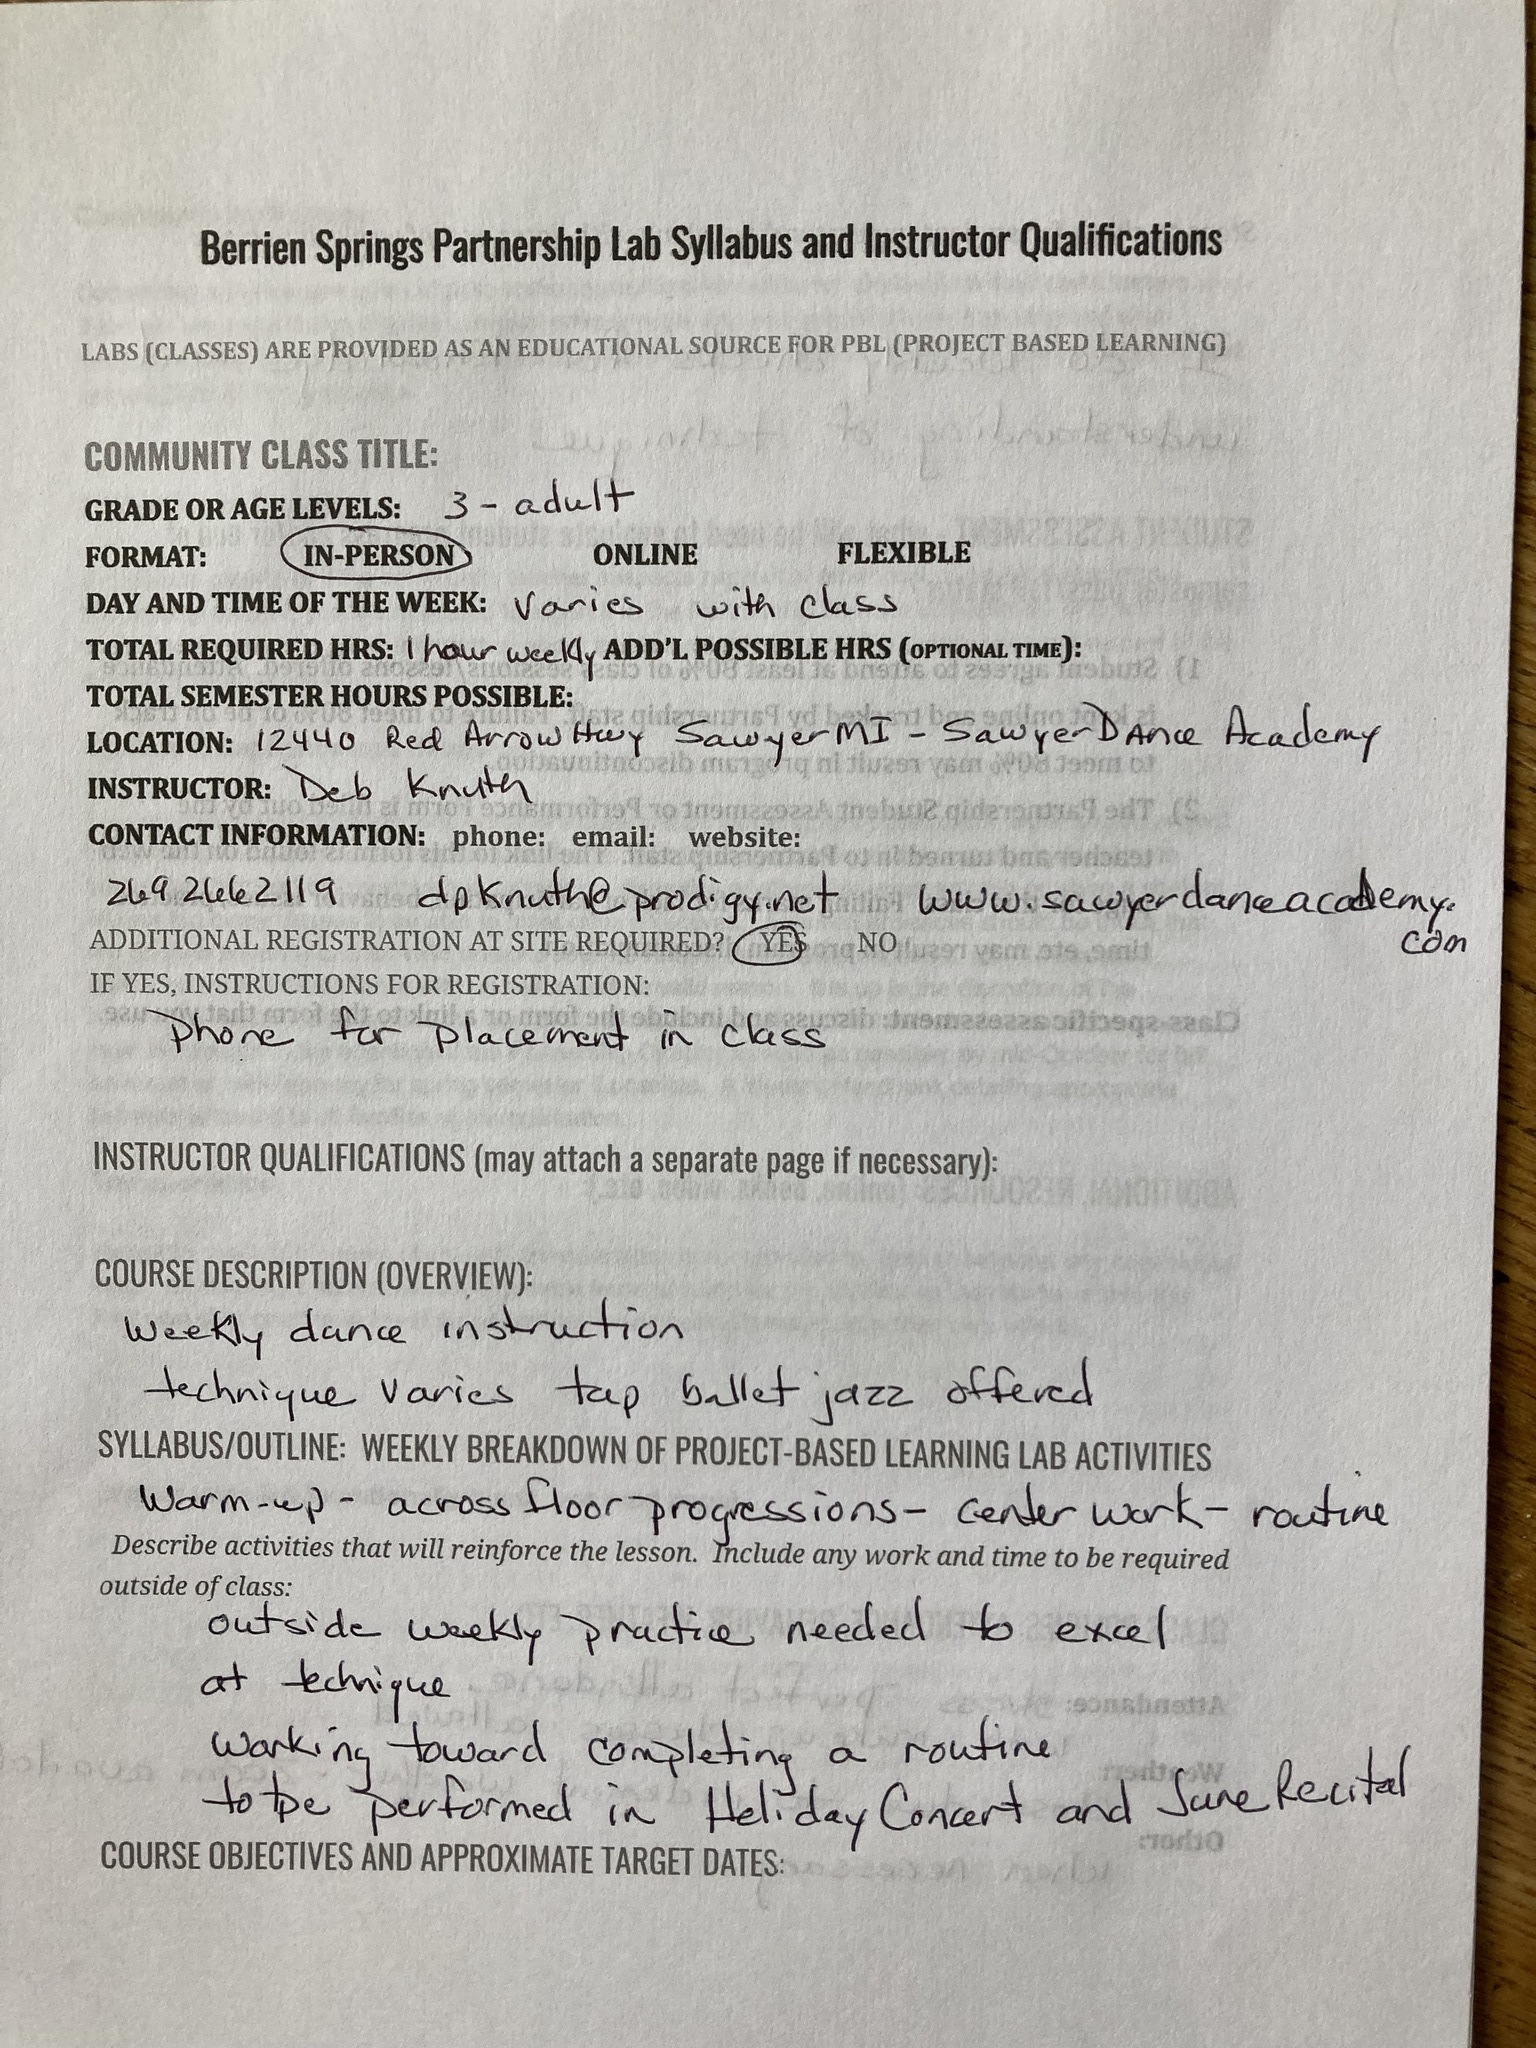 Berrien Springs Partnership Lab Syllabus and Instructor Qualifications
LABS (CLASSES) ARE PROVIDED AS AN EDUCATIONAL SOURCE FOR PBL (PROJECT BASED LEARNING)
COMMUNITY CLASS TITLE:
GRADE OR AGE LEVELS: 3 - adult
FORMAT: IN-PERSON ONLINE FLEXIBLE
DAY AND TIME OF THE WEEK: varies with class
TOTAL REQUIRED HRS: 1 hour weekly ADD'L POSSIBLE HRS (OPTIONAL TIME):
TOTAL SEMESTER HOURS POSSIBLE:
LOCATION: 12440 Red Arrow Hwy Sawyer MI - Sawyer Dance Academy
INSTRUCTOR: Deb Knuth
CONTACT INFORMATION: phone: email: website:
269 266 2119 dpknuth@prodigy.net www.sawyerdanceacademy.
com
ADDITIONAL REGISTRATION AT SITE REQUIRED? YES NO
IF YES, INSTRUCTIONS FOR REGISTRATION:
phone for placement in class
INSTRUCTOR QUALIFICATIONS (may attach a separate page if necessary):
COURSE DESCRIPTION (OVERVIEW):
weekly dance instruction
technique varies tap ballet jazz offered
SYLLABUS/OUTLINE: WEEKLY BREAKDOWN OF PROJECT-BASED LEARNING LAB ACTIVITIES
Warm-up - across floor progressions - center work - routine
Describe activities that will reinforce the lesson. Include any work and time to be required
outside of class:
outside weekly practice needed to excel
at technique
working toward completing a routine
to be performed in Holiday Concert and June Recital
COURSE OBJECTIVES AND APPROXIMATE TARGET DATES: